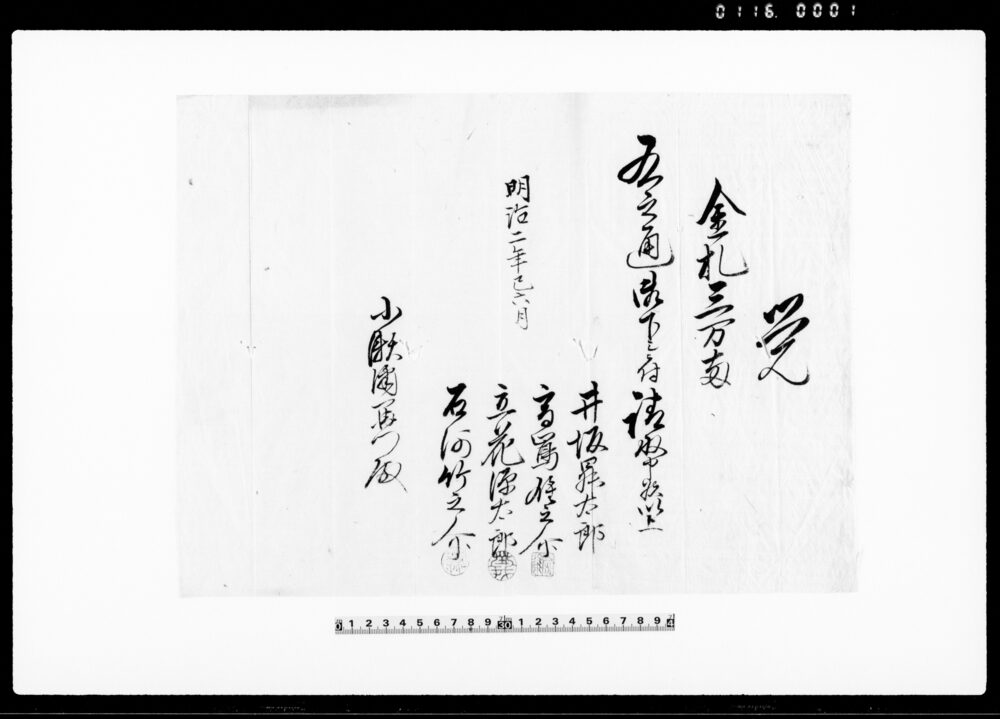 0116. 0001
覚
金札三万両
右之通御下ケ付請取申候以上
明治二年巳六月
井坂
高嶌 之介
立花源太郎
石河竹之介
小 殿
0 1 2 3 4 5 6 7 8 9 30 1 2 3 4 5 6 7 8 9 4